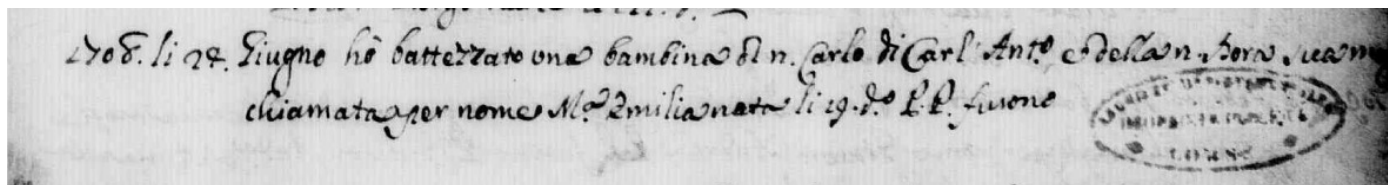 1708. li 24. Giugno hò battezzato una bambina di n. Carlo di Carl' Ant.o e della n. Hora sua
chiamata per nome M.a Emilia nata li 19. d.o P.P. furono